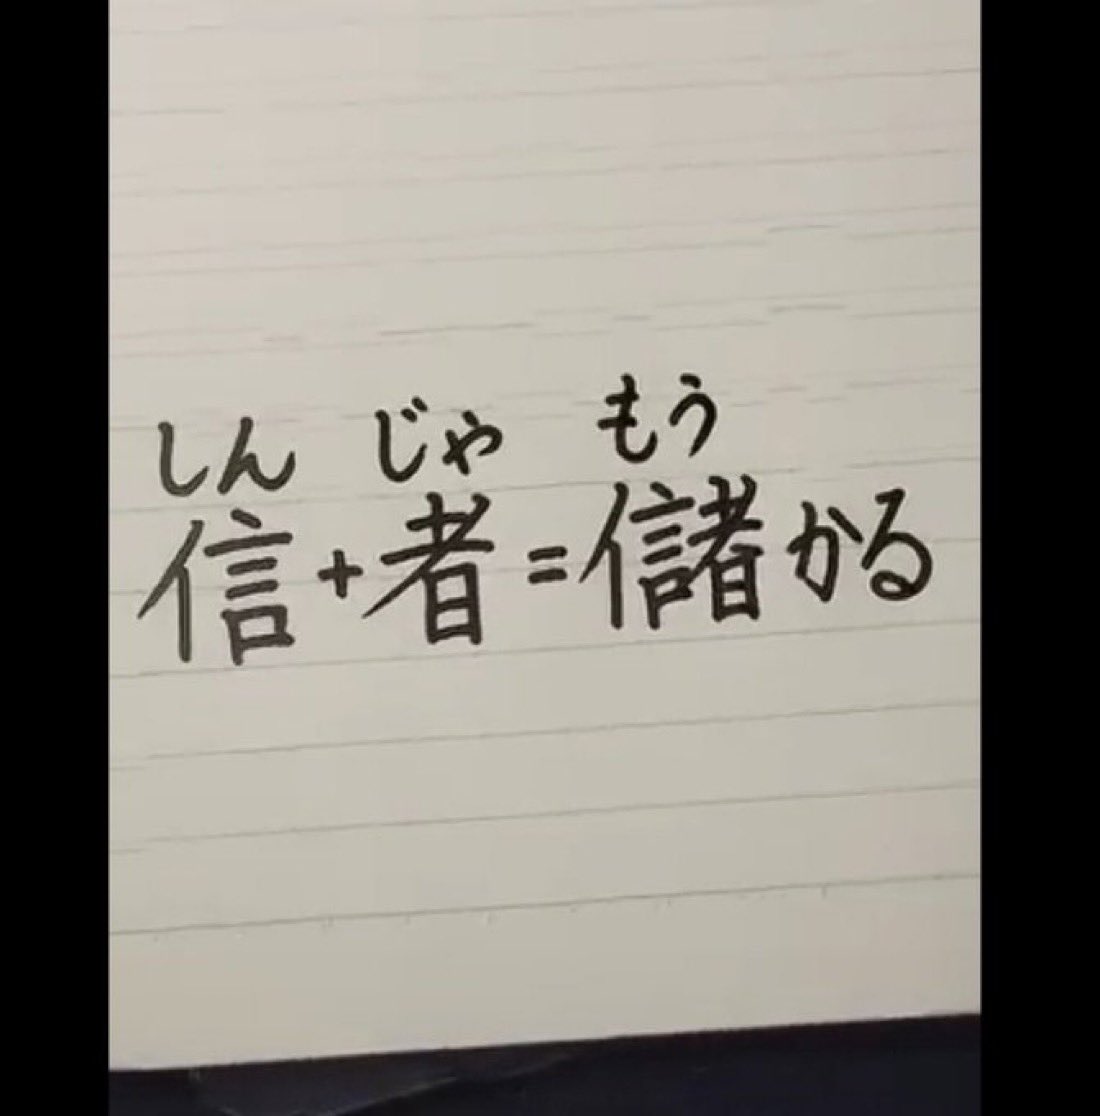 しん じゃ もう
信+者=儲かる